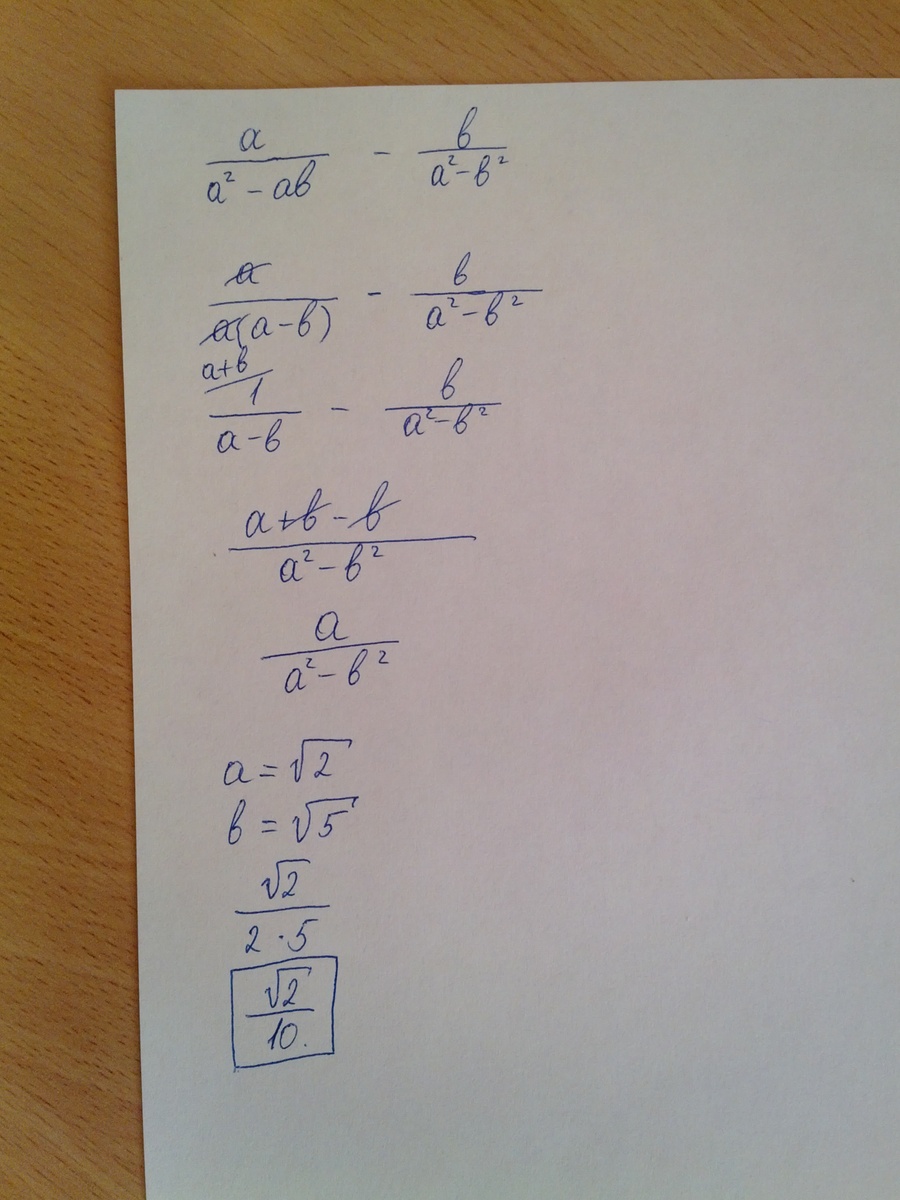 a/(a² - ab) - b/(a² - b²)
a/(a(a - b)) - b/(a² - b²)
a+b
1/(a - b) - b/(a² - b²)
(a + b - b)/(a² - b²)
a/(a² - b²)
a = √2
b = √5
√2/(2 · 5)
√2/10.